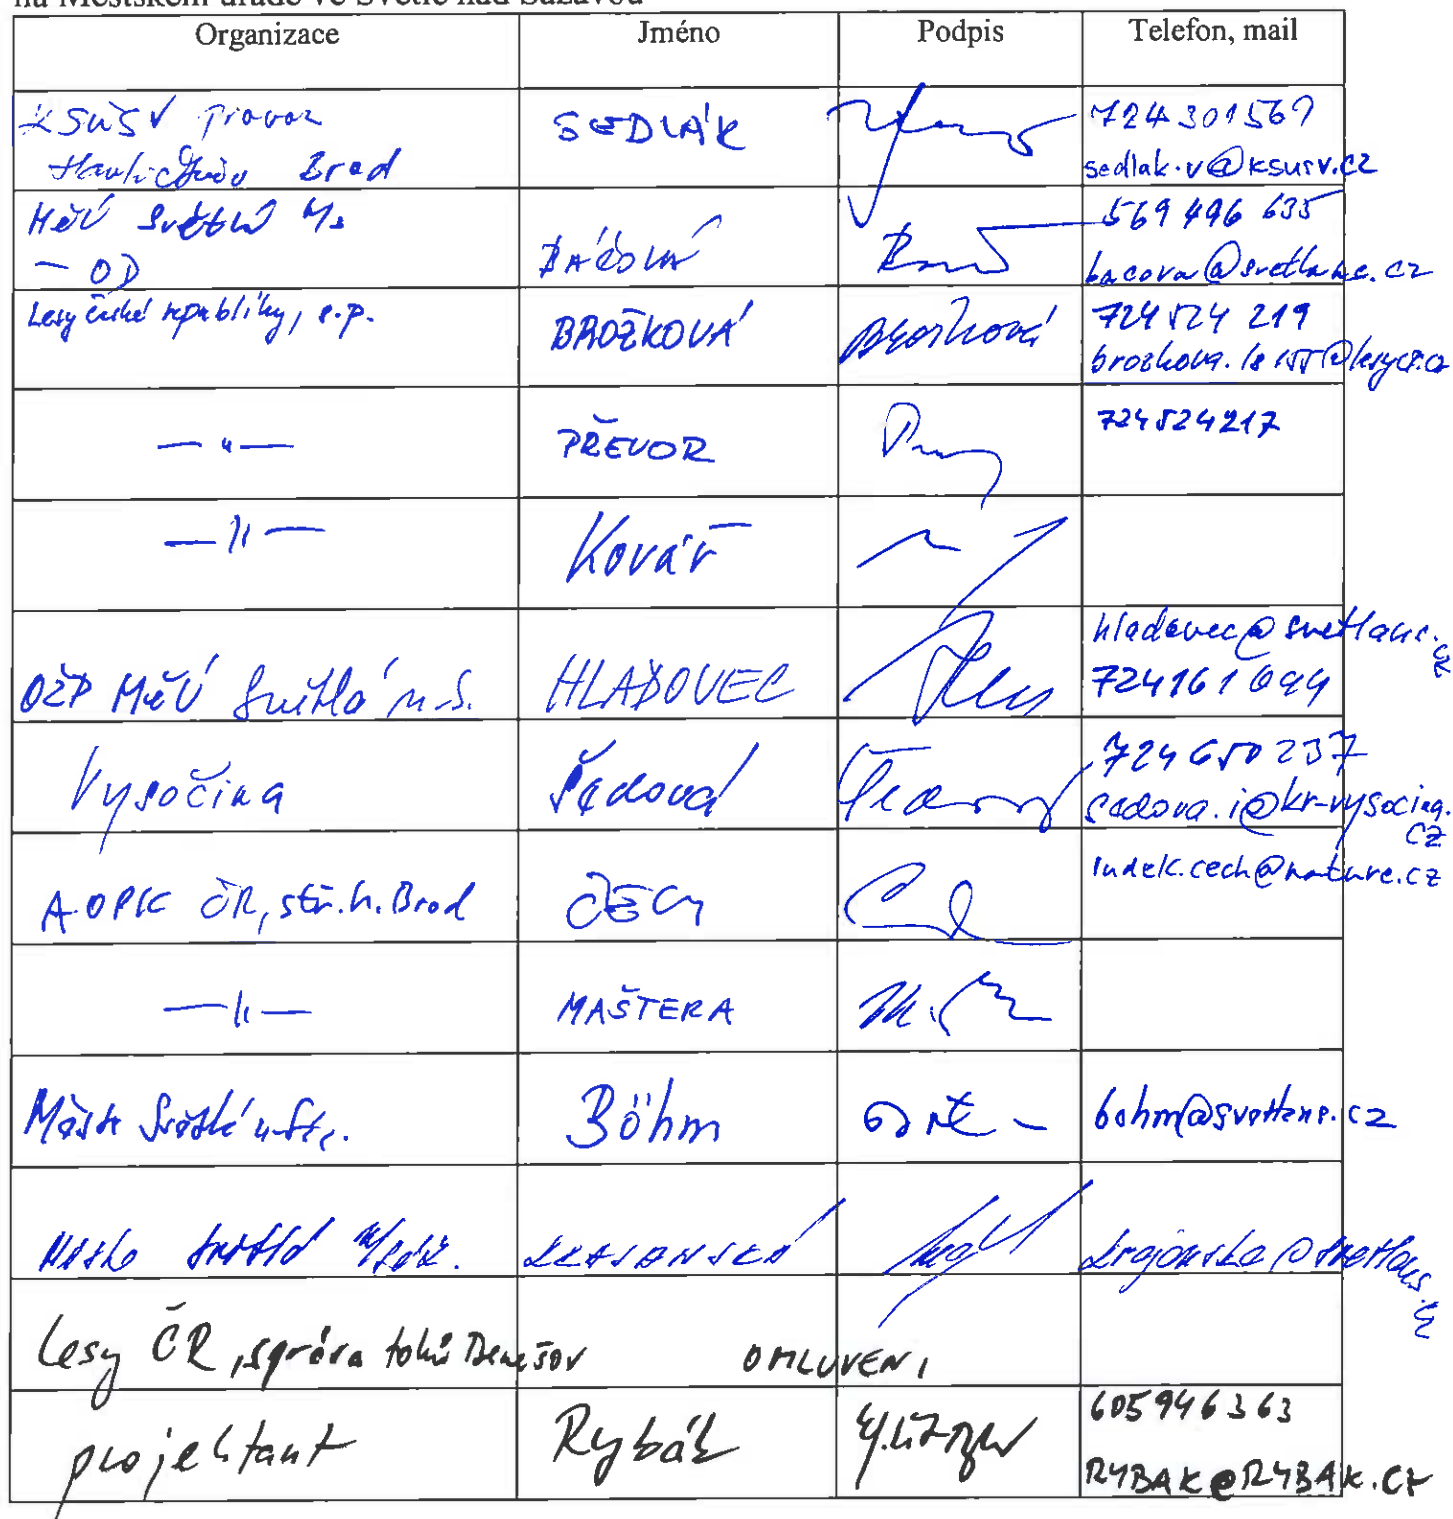 na Městském úřadě ve Světlé nad Sázavou
Organizace Jméno Podpis Telefon, mail
KSÚSV provoz
Havlíčkův Brod
SEDLÁK
724 301 567
sedlak.v@ksusv.cz
MěÚ Světlá n/S
- OD
BÁČOVÁ
569 496 635
bacova@svetlans.cz
Lesy české republiky, s.p.
BROŽKOVÁ
Brožková
724 524 219
— " —
PŘEVOR
724 524 217
— " —
Kovář
OŽP MěÚ Světlá n.S.
HLAĎOVEC
hladovec@svetlans.cz
724161 099
Vysočina
Šádová
724 650 237
sadova.i@kr-vysocina.cz
AOPK ČR, stř. H. Brod
ČECH
ludek.cech@nature.cz
— " —
MAŠTERA
Město Světlá n. Sáz.
Böhm
bohm@svetlans.cz
Město Světlá n/Sáz.
KRAJANSKÁ
Lesy ČR, správa toků Benešov OMLUVENI
projektant
Rybák
605946363
RYBAK@RYBAK.CZ